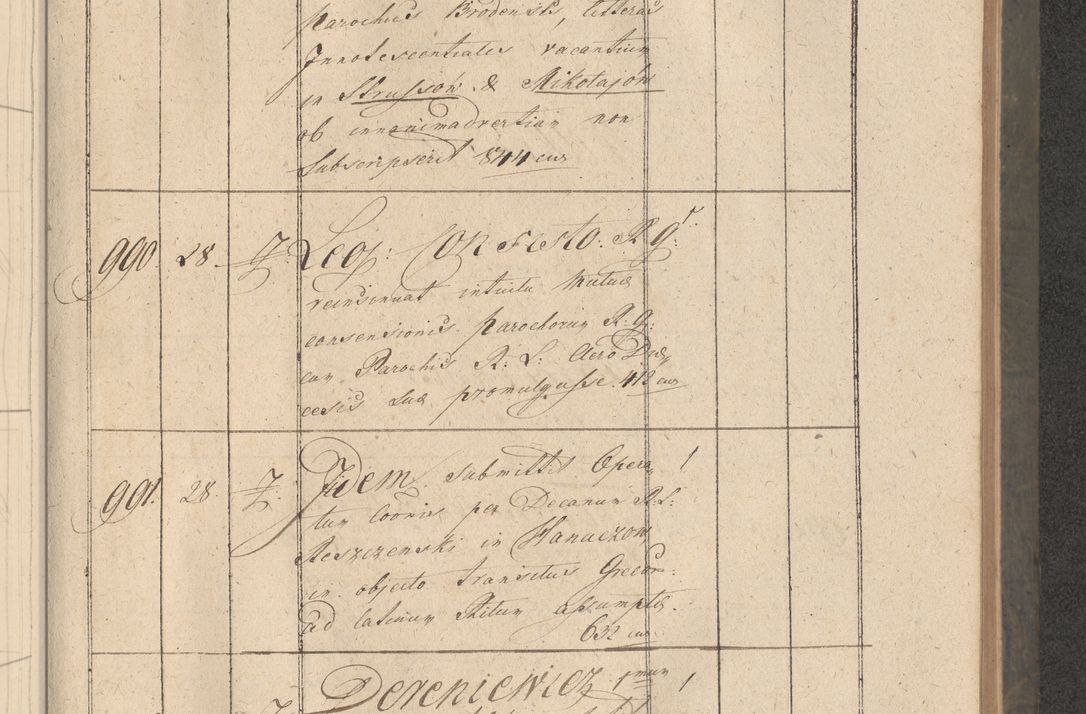 parochus Brodensis, litteras
Innotescentiales vacantium
in Strussow & Mikołajów
ob innanimadvertian non
Subscripserit 844 cur
990 28 7. Leop: Consisto. R. g.
reinsinuat intuitu mutuae
consensionis parochorum R. g.
cum Parochis R: L: Clero Dioe
cesis suae promulgasse. 412 cur
991. 28. 7. Idem submittit Opera 1
tum Coonis per Decanum R. L:
Reszczenski in Hanaczow
in objecto transitus Grecor:
ad latinum Ritum assumptae.
632 cur
Dereniewicz 1